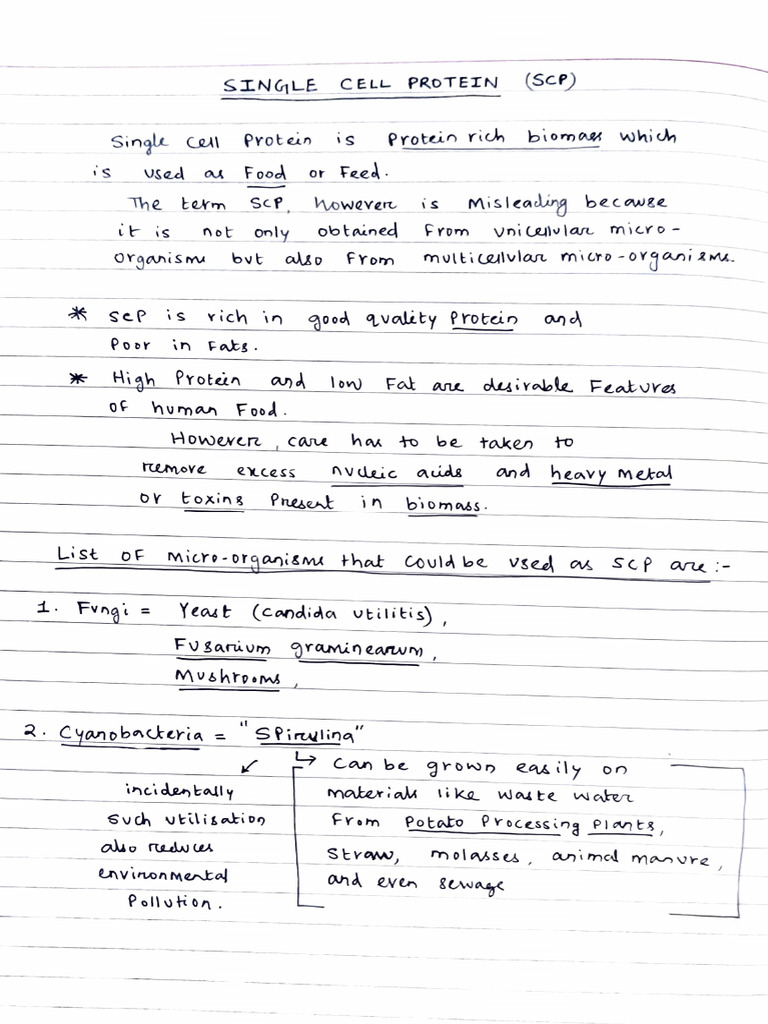 SINGLE CELL PROTEIN (SCP)
Single Cell Protein is Protein rich biomass which
is used as Food or Feed.
The term SCP, however is Misleading because
it is not only obtained From unicellular micro-
organisms but also From multicellular micro-organisms.
* SCP is rich in good quality Protein and
Poor in Fats.
* High Protein and low Fat are desirable Features
OF human Food.
However, care has to be taken to
remove excess nucleic acids and heavy metal
or toxins Present in biomass.
List OF micro-organisms that could be used as SCP are :-
1. Fungi = Yeast (Candida utilitis),
Fusarium graminearum,
Mushrooms,
2. Cyanobacteria = "Spirulina"
↙ ↳ Can be grown easily on
incidentally materials like waste water
such utilisation From Potato Processing Plants,
also reduces Straw, molasses, animal manure,
environmental and even sewage
Pollution.